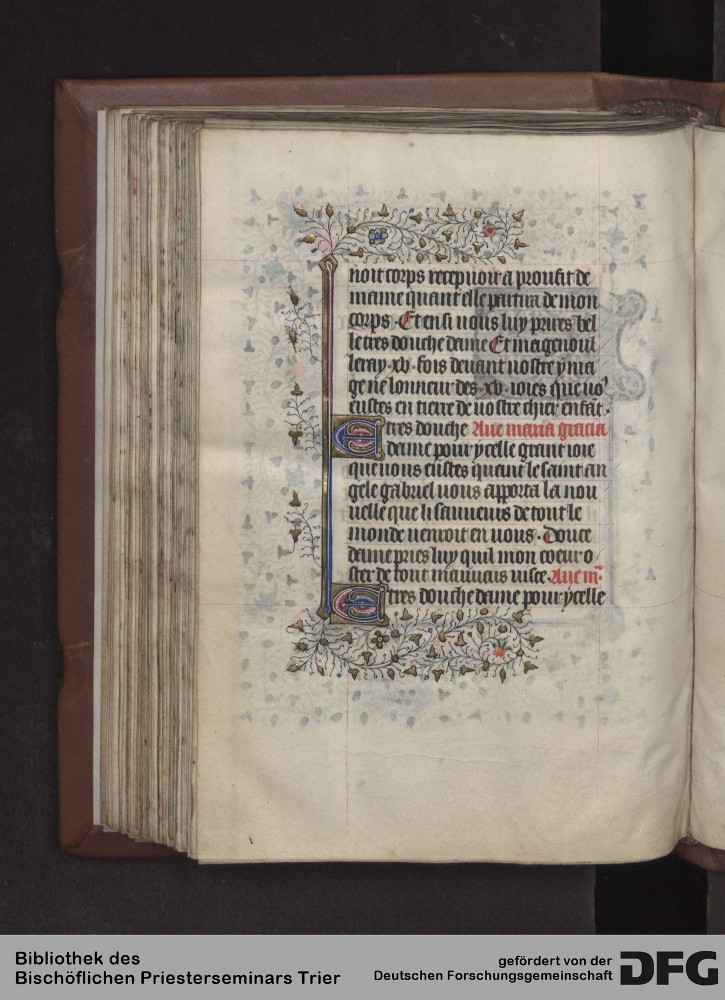 noit corps recepuoir a proufit de
mame quant elle partira de mon
corps. Et ensi uous luy prires bel
le tres douche dame Et magenoul
leray .xv. fois deuant nostre yma
ge ne lonneur des .xv. ioies que uoꝰ
eustes en terre de uostre chier enfāt.
E tres douche Aue maria gracia
dame pour ycelle grant ioie
que uous eustes quant le saint an
gele gabriel uous apporta la nou
uelle que li sauueurs de tout le
monde uenroit en uous. Douce
dame pries luy quil mon coeur o
ster de tout mauuais uisce. Aue mᵃ.
E tres douche dame pour ycelle
Bibliothek des
Bischöflichen Priesterseminars Trier
gefördert von der
Deutschen Forschungsgemeinschaft
DFG